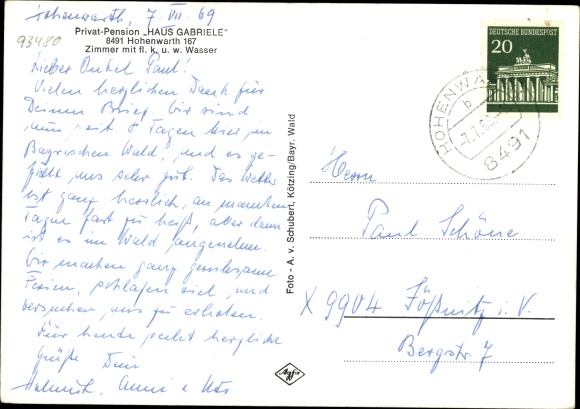 Hohenwarth, 7. VII. 69
93480
Privat-Pension „HAUS GABRIELE"
8491 Hohenwarth 167
Zimmer mit fl. k. u. w. Wasser
Lieber Onkel Paul!
Vielen herzlichen Dank für
Deinen Brief. Wir sind
nun seit 8 Tagen hier im
Bayrischen Wald, und es ge-
fällt uns sehr gut. Das Wetter
ist ganz herrlich, an manchen
Tagen fast zu heiß, aber dann
ist es im Wald angenehm.
Wir machen ganz geruhsame
Ferien, schlafen viel, und
versuchen, uns zu erholen.
Für heute recht herzliche
Grüße Dein
Helmut, Anni u
Foto - A. v. Schubert, Kötzting/Bayr. Wald
DEUTSCHE BUNDESPOST
20
HOHENWA
b
-7.7.69
8491
Herrn
Paul Schöne
X 9904 Jößnitz i. V.
Bergstr. 7
Agfa